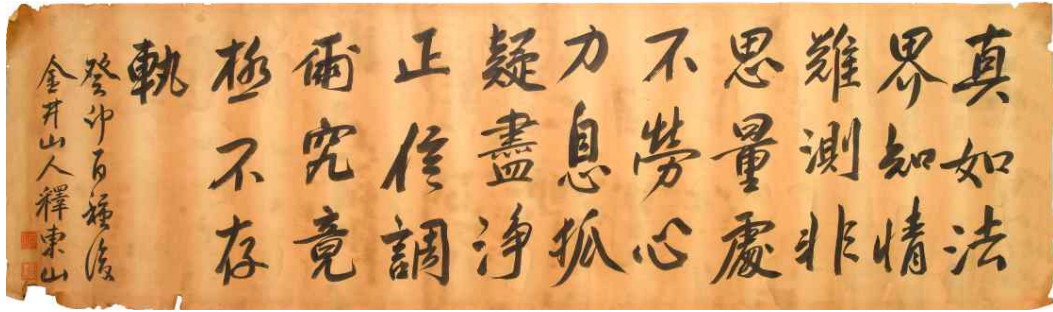 真如法
界知情
難測非
思量處
不勞心
力息狐
疑盡淨
正信調
爾究竟
極不存
軌
癸卯百種後
金井山人釋東山